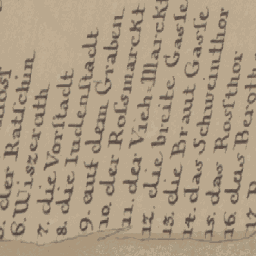 5. der Ratſchin
6. Wiszeruth
7. die Vorſtadt
8. die Iudenſtadt
9. auf dem Graben
10. der Roſsmarckt
11. der Vieh-Marckt
12. die breite Gaſſe
13. die Braut Gaſſe
14. das Schweinthor
15. das Roſſthor
16. das
17.